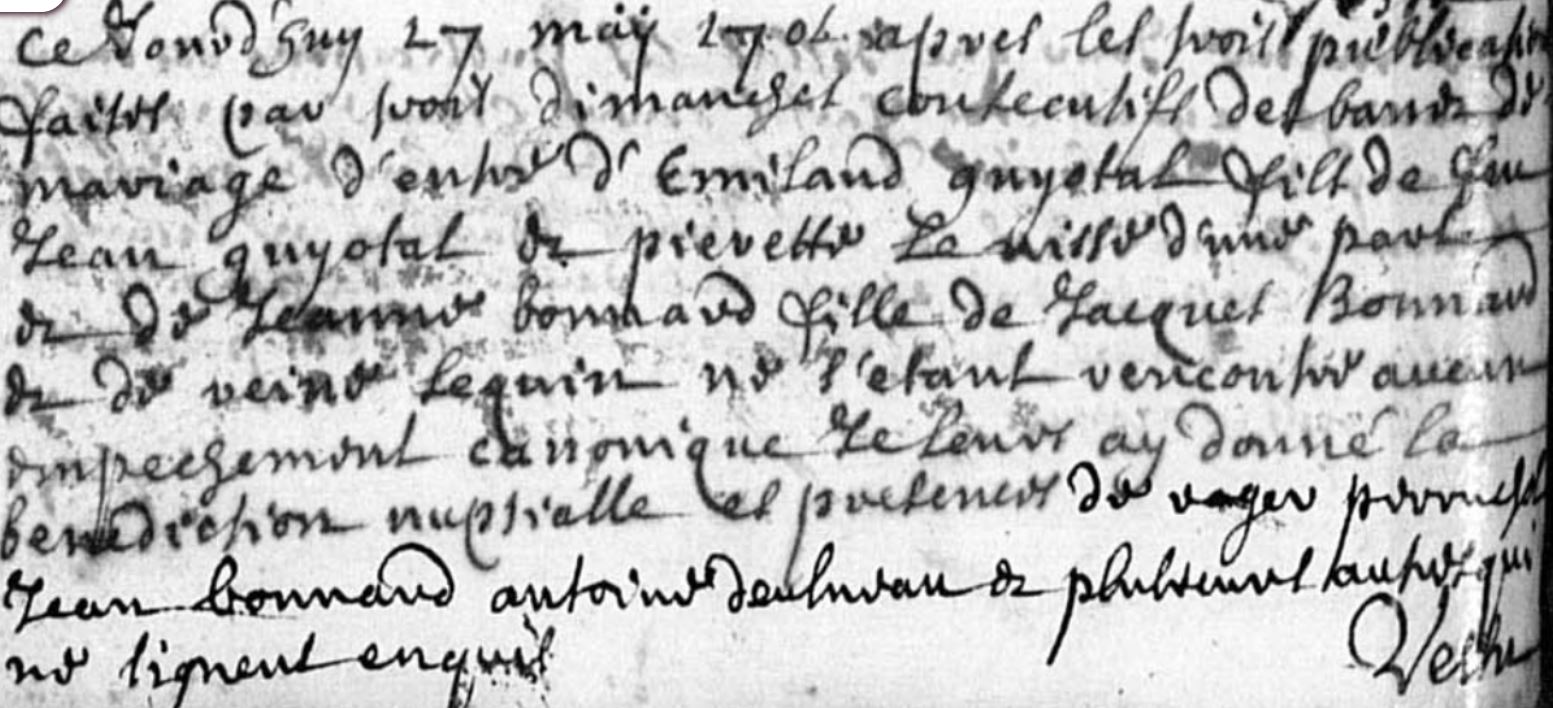 Ce Jourd'huy 27 maÿ 1706 apres les trois publications
faites par trois dimanches consecutifs des bans de
mariage d'entre d'Emiland guyotat fils de feu
Jean guyotat & pierette d'une part
& de Jeanne bonnard fille de Jacques Bonnard
& de reine sequin ne s'etant rencontré aucun
empechement cannonique Je leurs ay donné la
benediction nuptialle es presences de
Jean bonnard antoine & plusieurs autres qui
ne signent enquis